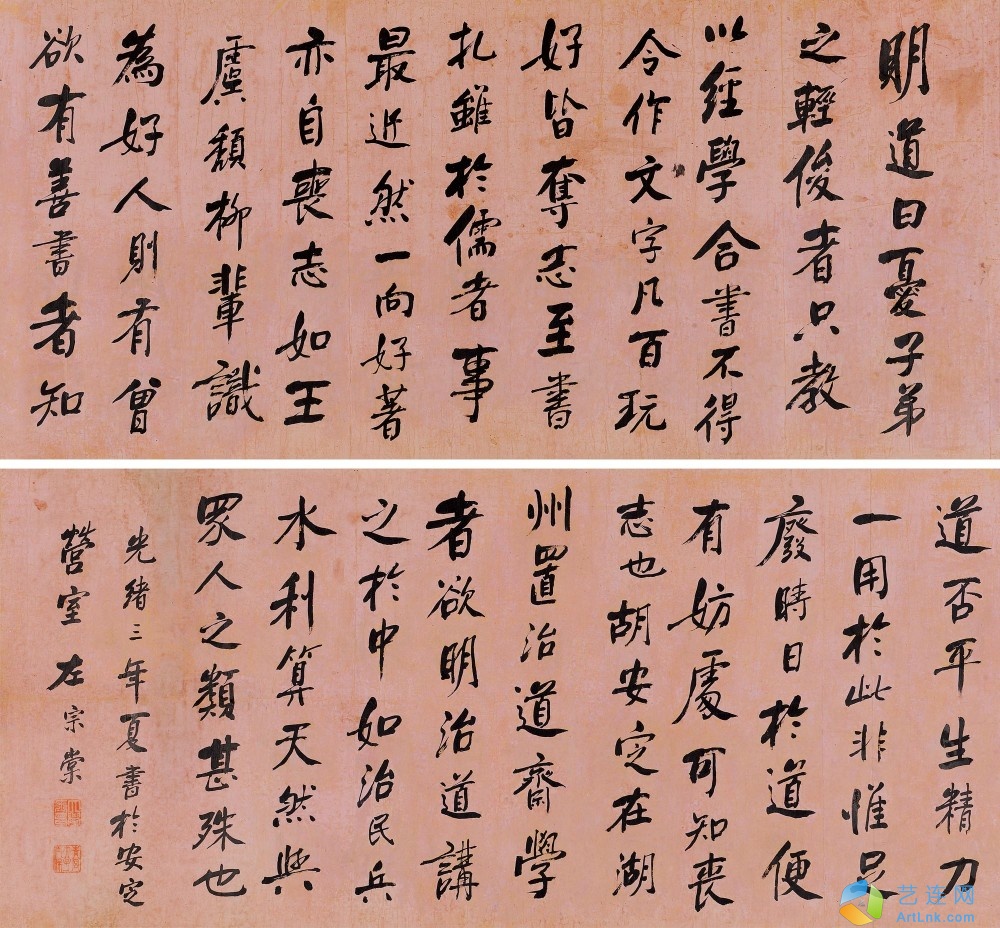 明道曰憂子弟
之輕俊者只教
以經學合書不得
令作文字凡百玩
好皆奪志至書
扎雖於儒者事
最近然一向好著
亦自喪志如王
虞顏柳輩識
為好人則有曾
欲有善書者知
道否平生精力
一用於此非惟足
廢時日於道便
有妨處可知喪
志也胡安定在湖
州置治道齋學
者欲明治道講
之於中如治民兵
水利算天然與
眾人之類甚殊也
光緒三年夏書於安定
營室 左宗棠
艺连网
ArtLnk.com